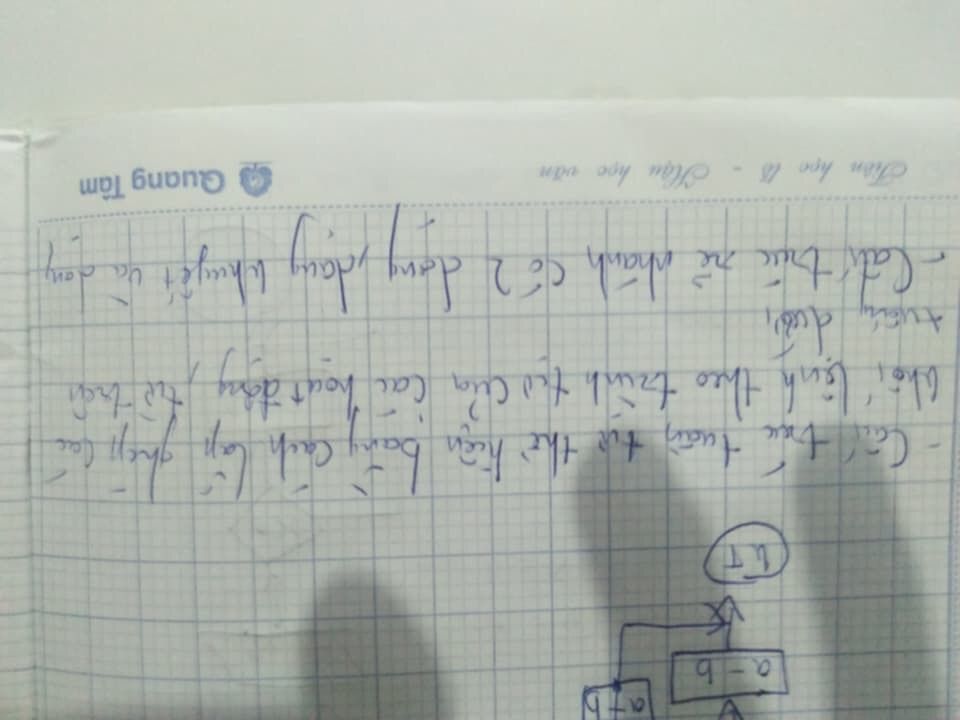 a+b
a-b
KT
- Cấu trúc tuần tự thể hiện bằng cách lắp ghép các
khối lệnh theo trình tự của các hoạt động, từ trên
xuống dưới
- Cấu trúc rẽ nhánh có 2 dạng, dạng khuyết và dạng
Tiên học lễ - Hậu học văn
Quang Tâm